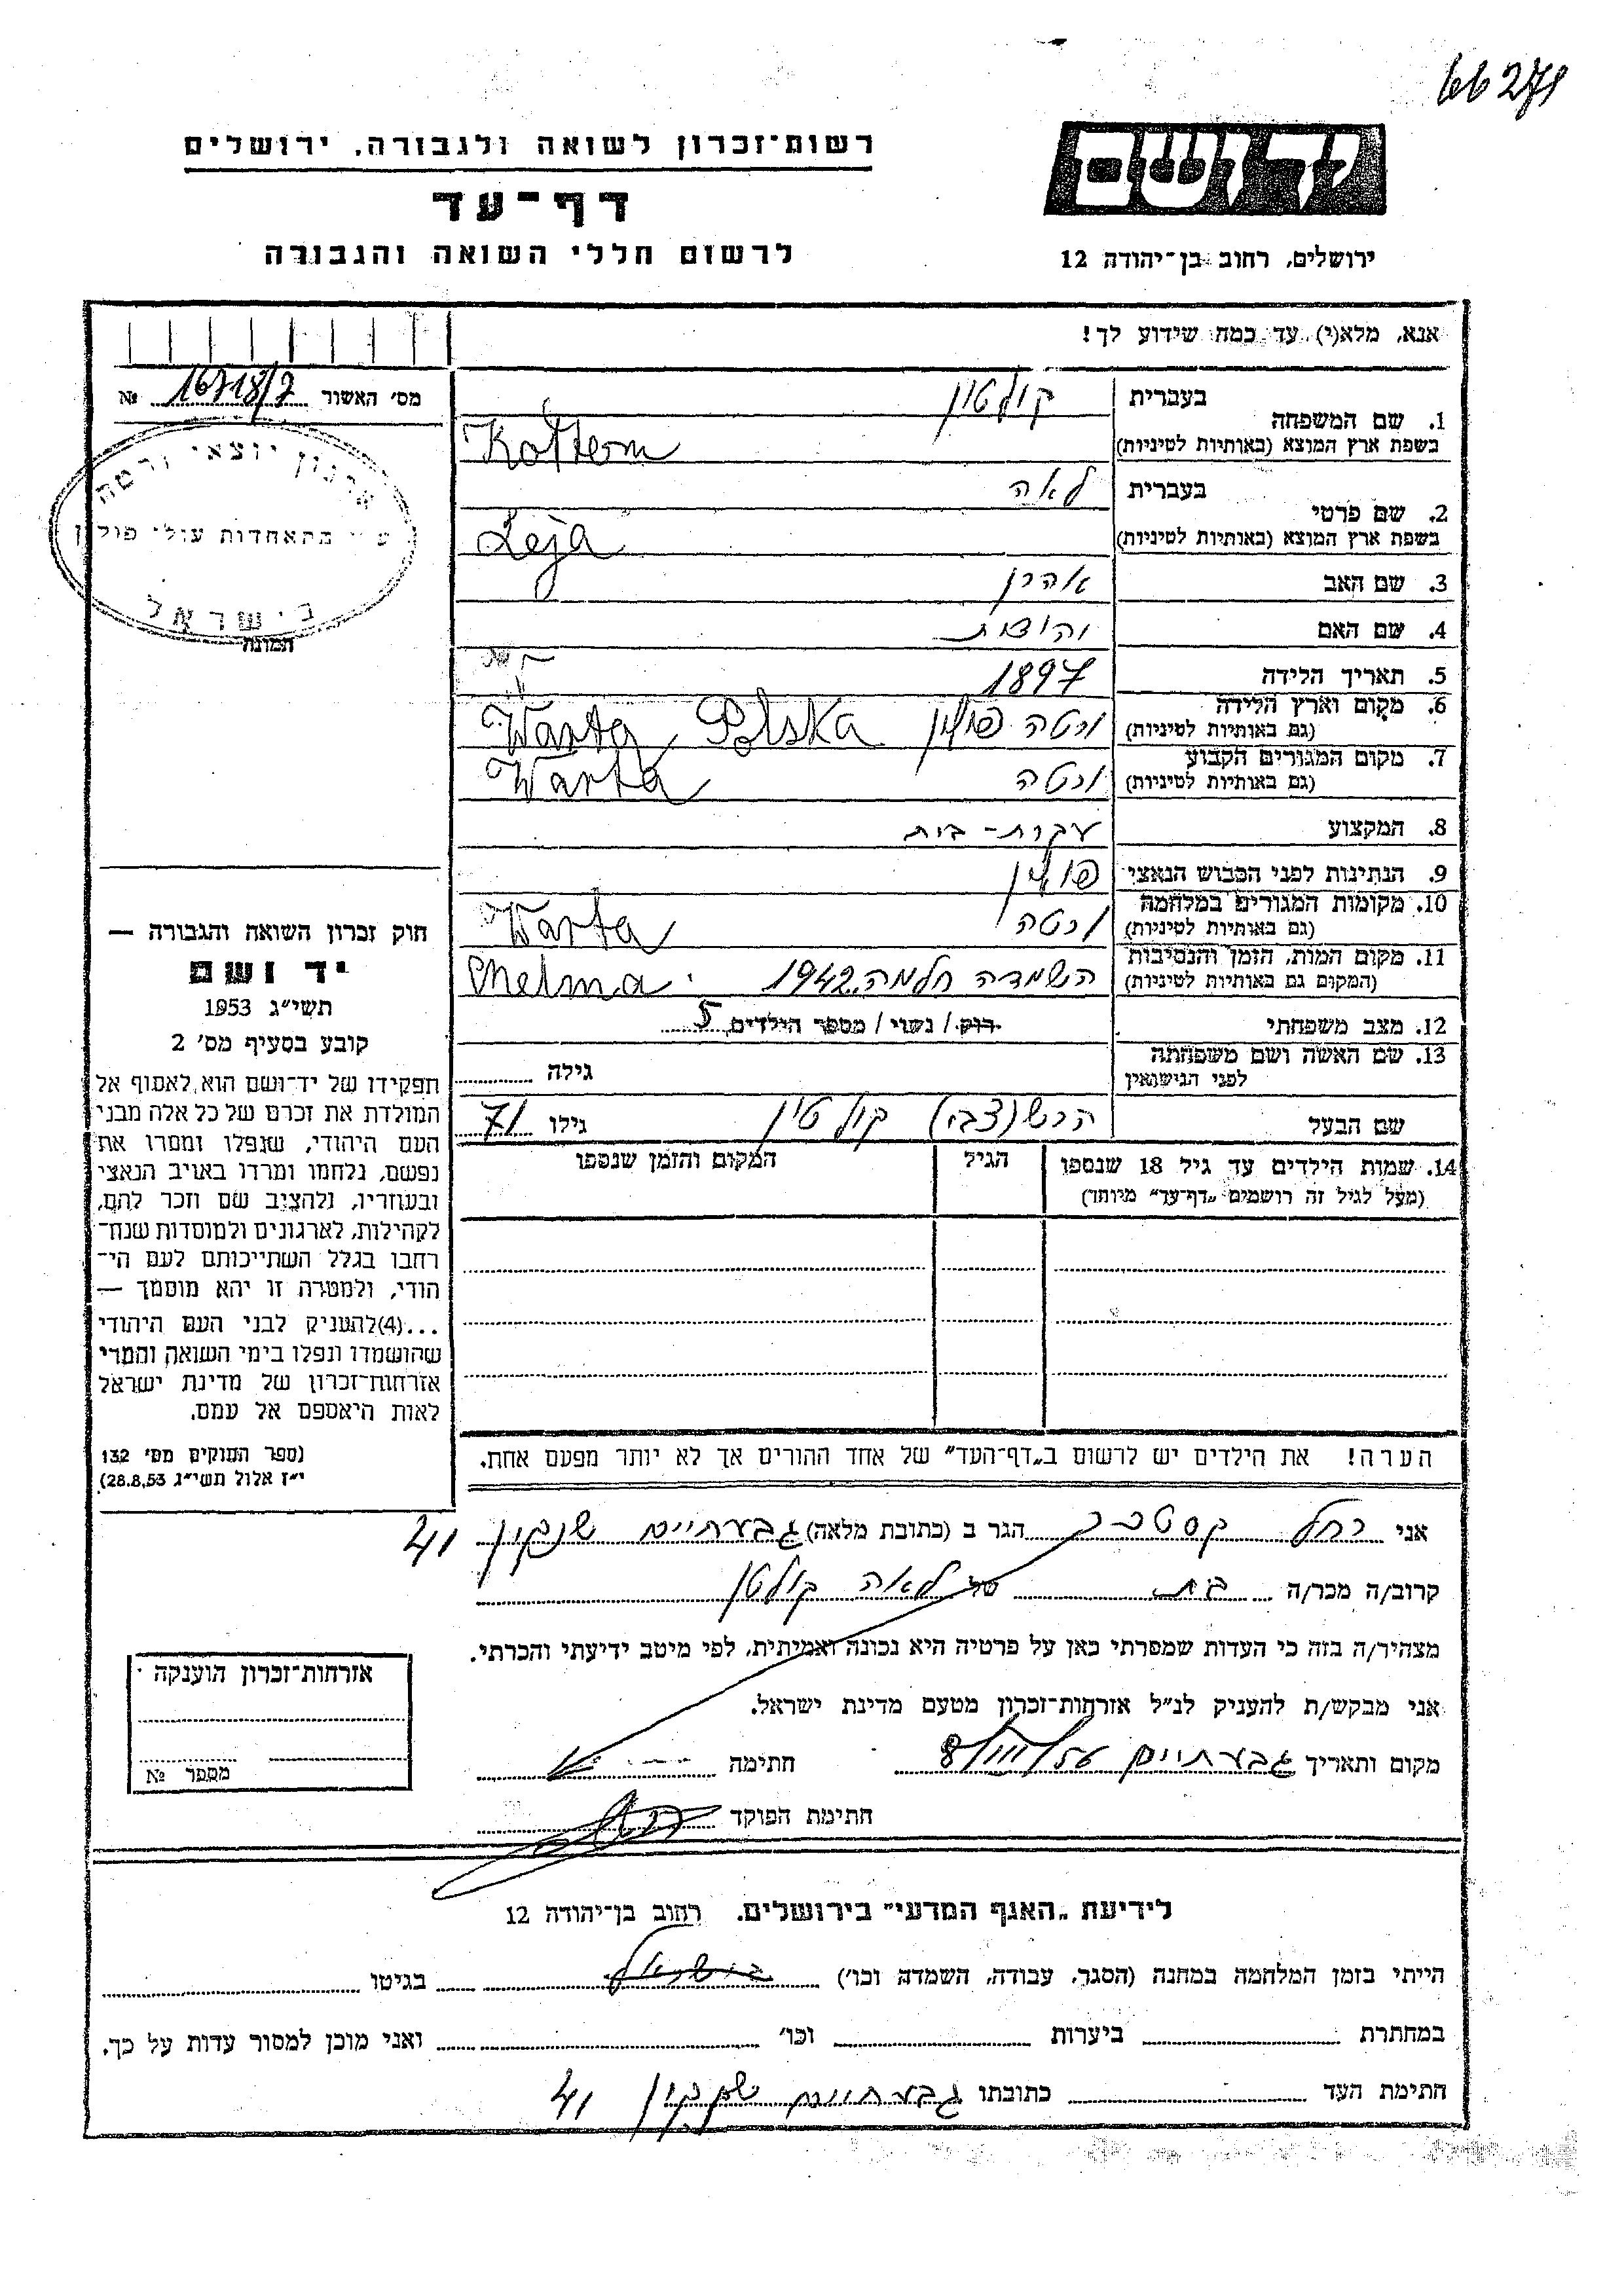 66271
יד ושם
רשות־זכרון לשואה ולגבורה, ירושלים
דף־עד
לרשום חללי השואה והגבורה
ירושלים, רחוב בן־יהודה 12
אנא, מלא(י) עד כמה שידוע לך!
מס׳ האשור 16718/7 №
ארגון יוצאי ורטה
ע״י התאחדות עולי פולין
בישראל
תמונה
1. שם המשפחה
בעברית קולטון
בשפת ארץ המוצא (באותיות לטיניות) Kołton
2. שם פרטי
בעברית לאה
בשפת ארץ המוצא (באותיות לטיניות) Leja
3. שם האב אהרן
4. שם האם
5. תאריך הלידה 1897
6. מקום וארץ הלידה
(גם באותיות לטיניות) ורטה פולין Warta, Polska
7. מקום המגורים הקבוע
(גם באותיות לטיניות) ורטה Warta
8. המקצוע עקרת-בית
9. הנתינות לפני הכבוש הנאצי פולין
10. מקומות המגורים במלחמה
(גם באותיות לטיניות) ורטה Warta
11. מקום המות, הזמן והנסיבות
(המקום גם באותיות לטיניות) השמדה חלמה 1942. Chelma
12. מצב משפחתי רוק / נשוי / מספר הילדים 5
13. שם האשה ושם משפחתה
לפני הנישואין גילה
שם הבעל הרש (צבי) קולטין גילו 71
14. שמות הילדים עד גיל 18 שנספו הגיל המקום והזמן שנספו
(מעל לגיל זה רושמים „דף־עד״ מיוחד)
חוק זכרון השואה והגבורה —
יד ושם
תשי״ג 1953
קובע בסעיף מס׳ 2
תפקידו של יד־ושם הוא לאסוף אל
המולדת את זכרם של כל אלה מבני
העם היהודי, שנפלו ומסרו את
נפשם, נלחמו ומרדו באויב הנאצי
ובעוזריו, ולהציב שם וזכר להם,
לקהילות, לארגונים ולמוסדות שנח־
רחבו בגלל השתייכותם לעם הי־
הודי, ולמטרה זו יהא מוסמך —
...(4)להעניק לבני העם היהודי
שהושמדו ונפלו בימי השואה והמרי
אזרחות־זכרון של מדינת ישראל
לאות היאספם אל עמם.
(ספר החוקים מס׳ 132
י״ז אלול תשי״ג 28.8.53)
הערה! את הילדים יש לרשום ב„דף־העד״ של אחד ההורים אך לא יותר מפעם אחת.
אני רחל הגר ב (כתובת מלאה) גבעתיים שנקין 41
קרוב/ה מכר/ה בת של לאה קולטן
מצהיר/ה בזה כי העדות שמסרתי כאן על פרטיה היא נכונה ואמיתית, לפי מיטב ידיעתי והכרתי.
אני מבקש/ת להעניק לנ״ל אזרחות־זכרון מטעם מדינת ישראל.
מקום ותאריך גבעתיים חתימה
חתימת הפוקד
אזרחות־זכרון הוענקה
מספר №
לידיעת „האגף המדעי״ בירושלים. רחוב בן־יהודה 12
הייתי בזמן המלחמה במחנה (הסגר, עבודה, השמדה וכו׳) בישראל בגיטו
במחתרת ביערות וכו׳ ואני מוכן למסור עדות על כך.
חתימת העד כתובתו גבעתיים שנקין 41